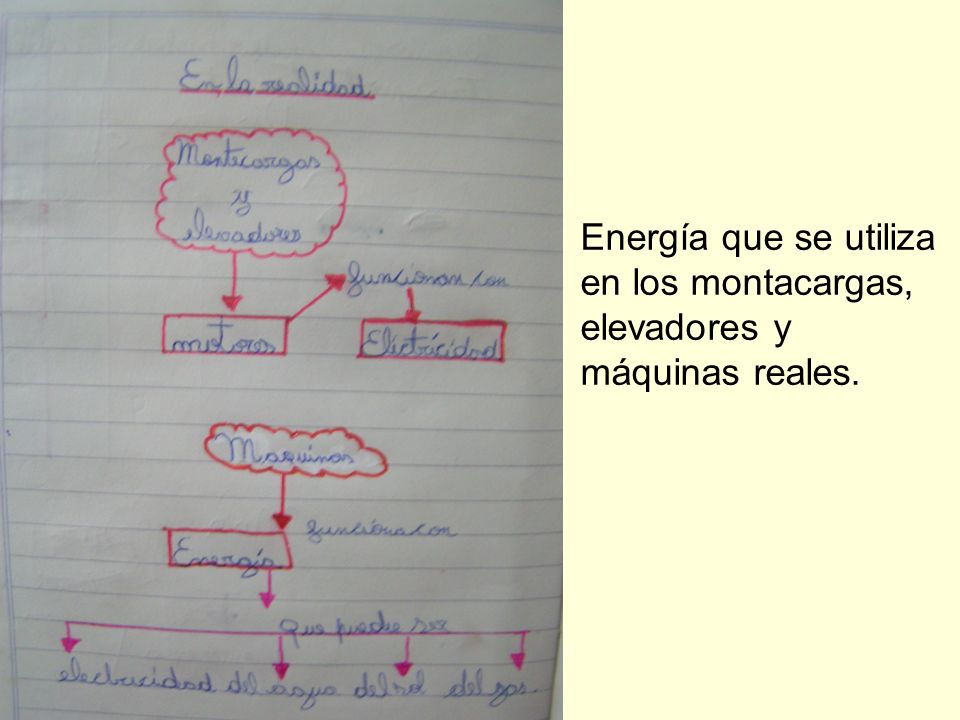 En la realidad
Montecargas
y
elevadores
funcionan con
motores
Eléctricidad
Maquinas
funciona con
Energía
que puede ser
electricidad del agua del sol del gas
Energía que se utiliza
en los montacargas,
elevadores y
máquinas reales.